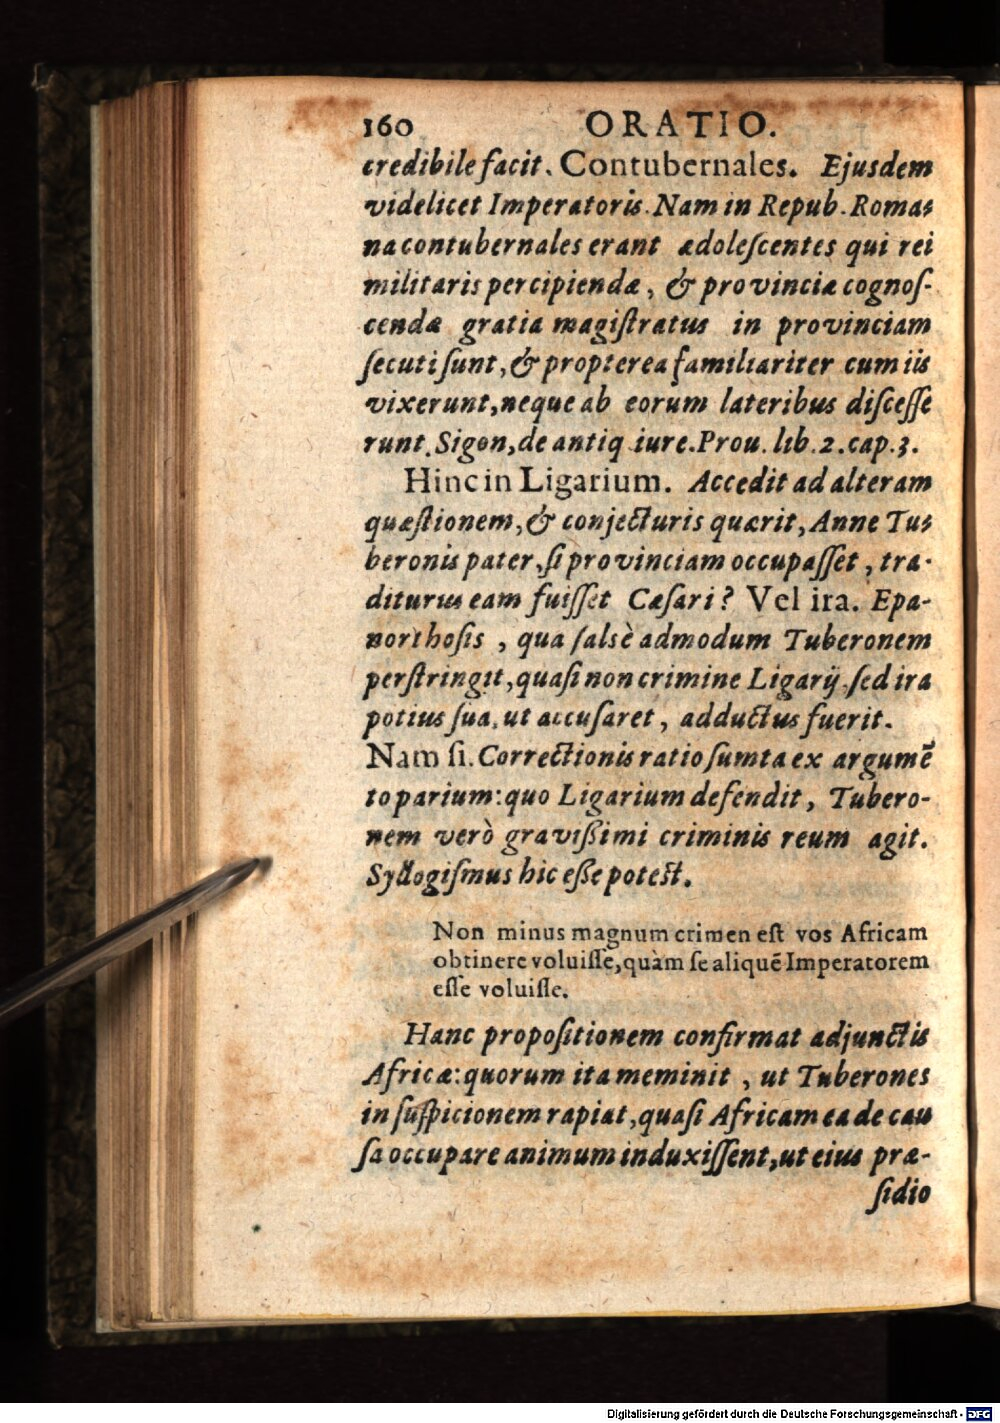 160 ORATIO.
credibile facit. Contubernales. Ejusdem
videlicet Imperatoris. Nam in Repub. Roma⸗
na contubernales erant adoleſcentes qui rei
militaris percipiendæ, & provinciæ cognoſ-
cendæ gratia magiſtratus in provinciam
ſecuti ſunt, & propterea familiariter cum iis
vixerunt, neque ab eorum lateribus diſceſſe
runt. Sigon, de antiq. iure. Prou. lib. 2. cap. 3.
Hinc in Ligarium. Accedit ad alteram
quæſtionem, & conjecturis quærit, Anne Tu⸗
beronis pater, ſi provinciam occupaſſet, tra-
diturus eam fuiſſet Cæſari? Vel ira. Epa-
northoſis, qua ſalsè admodum Tuberonem
perſtringit, quaſi non crimine Ligarij, ſed ira
potius ſua, ut accuſaret, adductus fuerit.
Nam ſi. Correctionis ratio ſumta ex argumẽ
to parium: quo Ligarium defendit, Tubero-
nem verò gravißimi criminis reum agit.
Syllogiſmus hic eße poteſt.
Non minus magnum crimen eſt vos Africam
obtinere voluiſſe, quàm ſe aliquẽ Imperatorem
eſſe voluiſſe.
Hanc propoſitionem confirmat adjunctis
Africæ: quorum ita meminit, ut Tuberones
in ſuſpicionem rapiat, quaſi Africam ea de cau
ſa occupare animum induxiſſent, ut eius præ-
ſidio
Digitalisierung gefördert durch die Deutsche Forschungsgemeinschaft - DFG